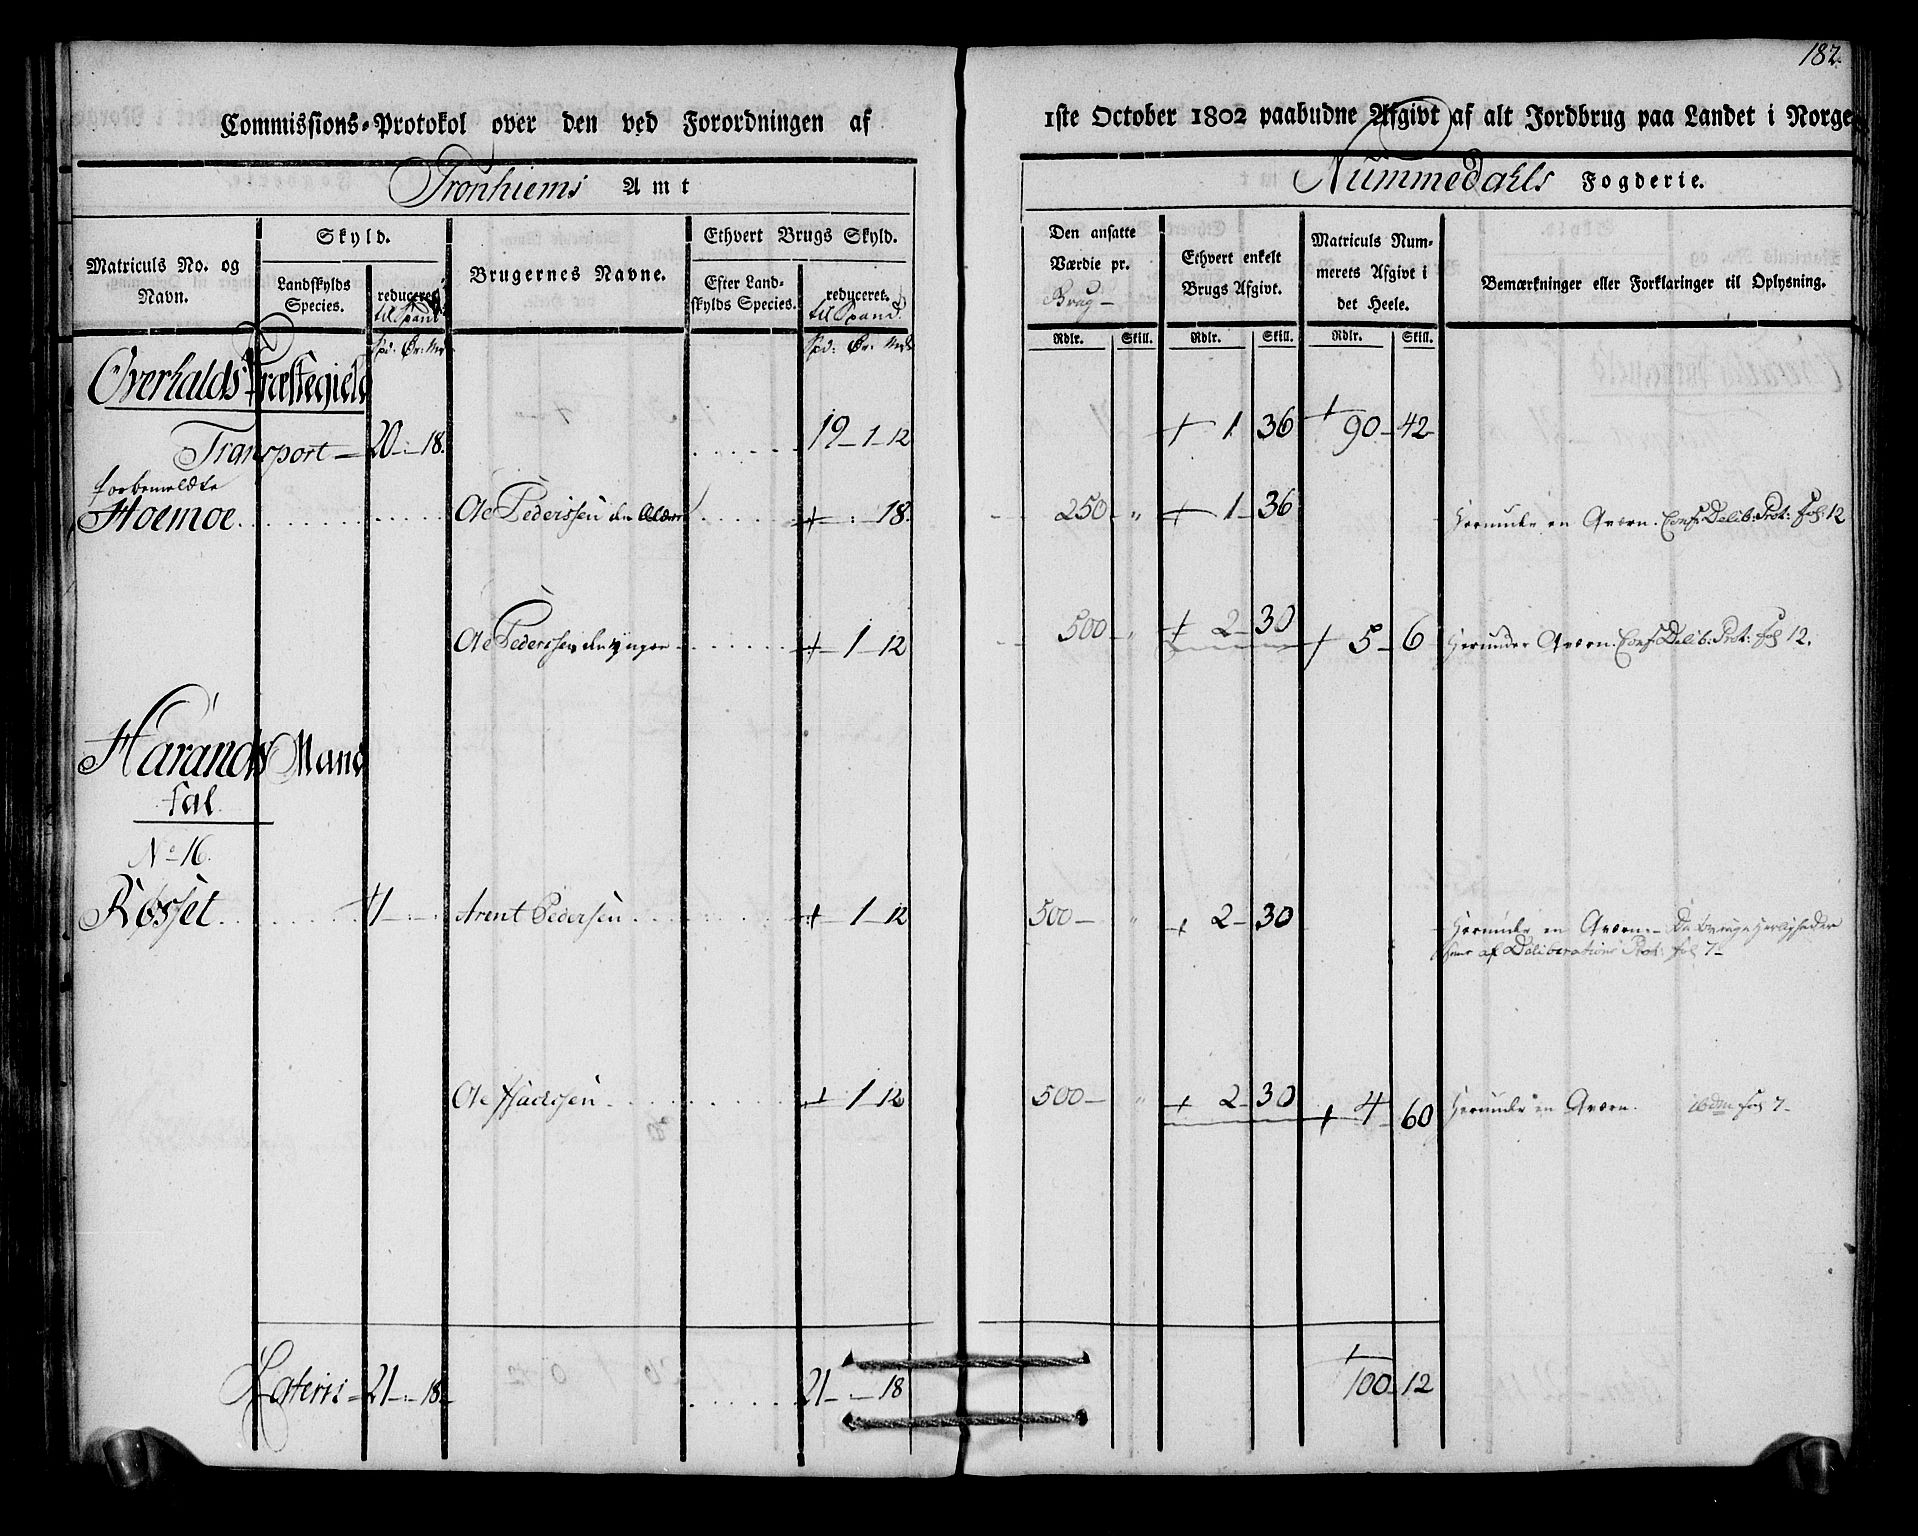 182.
Commissions-Protokol over den ved Forordningen af 1ste October 1802 paabudne Afgivt af alt Jordbrug paa Landet i Norge
Tronhiems Amt Nummedahls Fogderie.
Matriculs No. og Navn. Skyld. Brugernes Navne. Ethvert Brugs Skyld. Den ansatte Værdie pr. Brug Ethvert enkelt Brugs Afgivt. Matriculs Nummerets Afgivt i det Heele. Bemærkninger eller Forklaringer til Oplysning.
Landskylds Species. reduceret til Spand Efter Landskylds Species. reduceret. til Spand.
Rdlr. Skill. Rdlr. Skill. Rdlr. Skill.
Overhalds Præstegield
Transport 20 - : - 18. 19 - 1 - 12 + 1 36 + 90 - 42
forbemeldte
Hoemoe Ole Pederssen den Ældre + - : - 18. 250 - " + 1 - 36 Herunder en Qværn. Conf: Delib: Prot: fol: 12
Ole Pederssen den yngre + - 1 - 12 500 - " + 2 - 30 + 5 - 6 Herunder Qværn. Conf: Delib: Prot: fol 12.
Harands Mandtal
No 16.
Røsset 1 - : - Arent Pedersen + 1 - 12 500 - " + 2 - 30 Herunder en Qværn. - herligheder
af Deliberations Prot: fol 7 -
Ole + 1 - 12 500 - " + 2 - 30 + 4 60 Herunder en Qværn. ibdm fol 7 -
Lateris - 21 - : - 18. 21 - : - 18 100 - 12